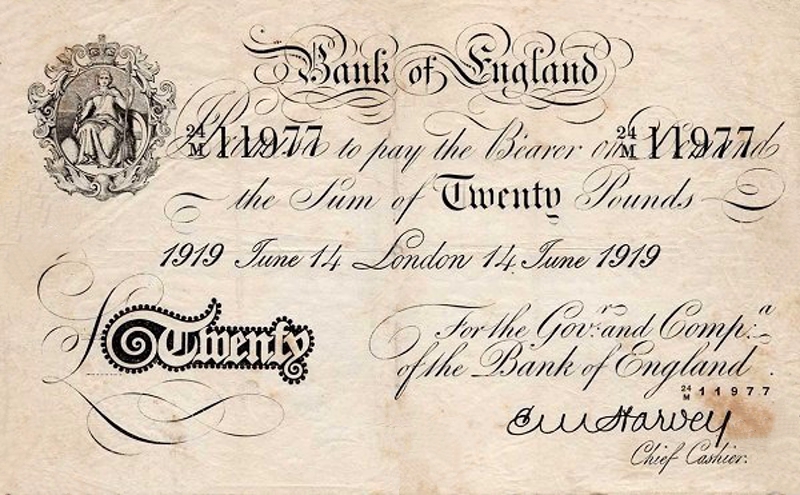 Bank of England
24/M 11977 24/M 11977
I Promise to pay the Bearer on Demand
the Sum of Twenty Pounds
1919 June 14 London 14 June 1919
For the Gov.r and Comp.a
of the Bank of England.
£Twenty
24/M 11977
E M Harvey
Chief Cashier.